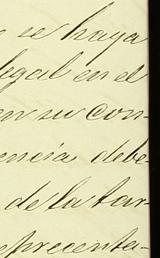 se haya
legal en el
en su con-
encia debe
de la tar
presenta-